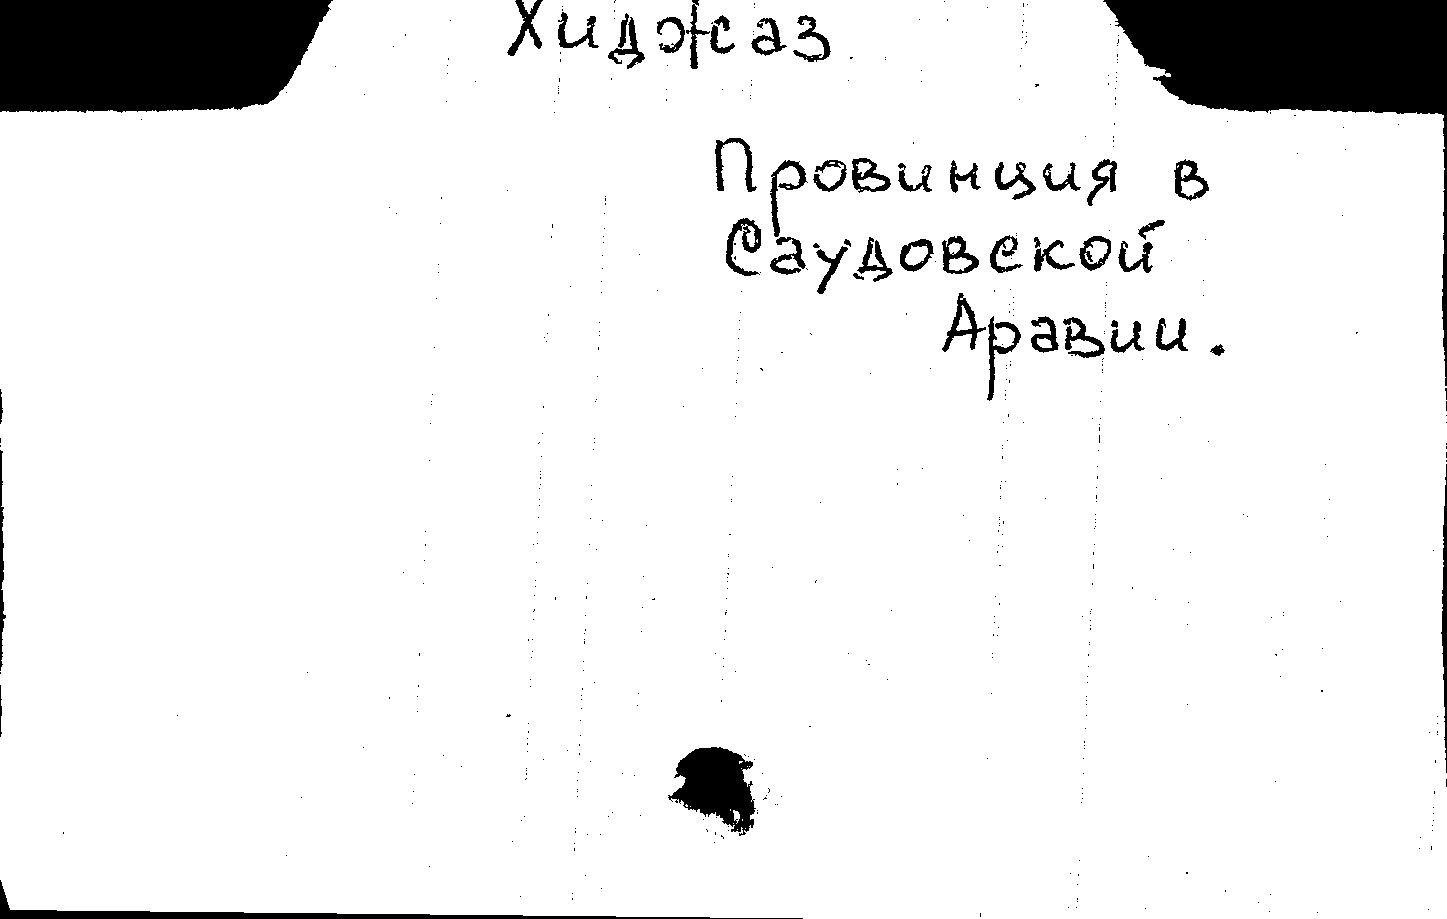 Хиджаз
Провинция в
Саудовской
Аравии.